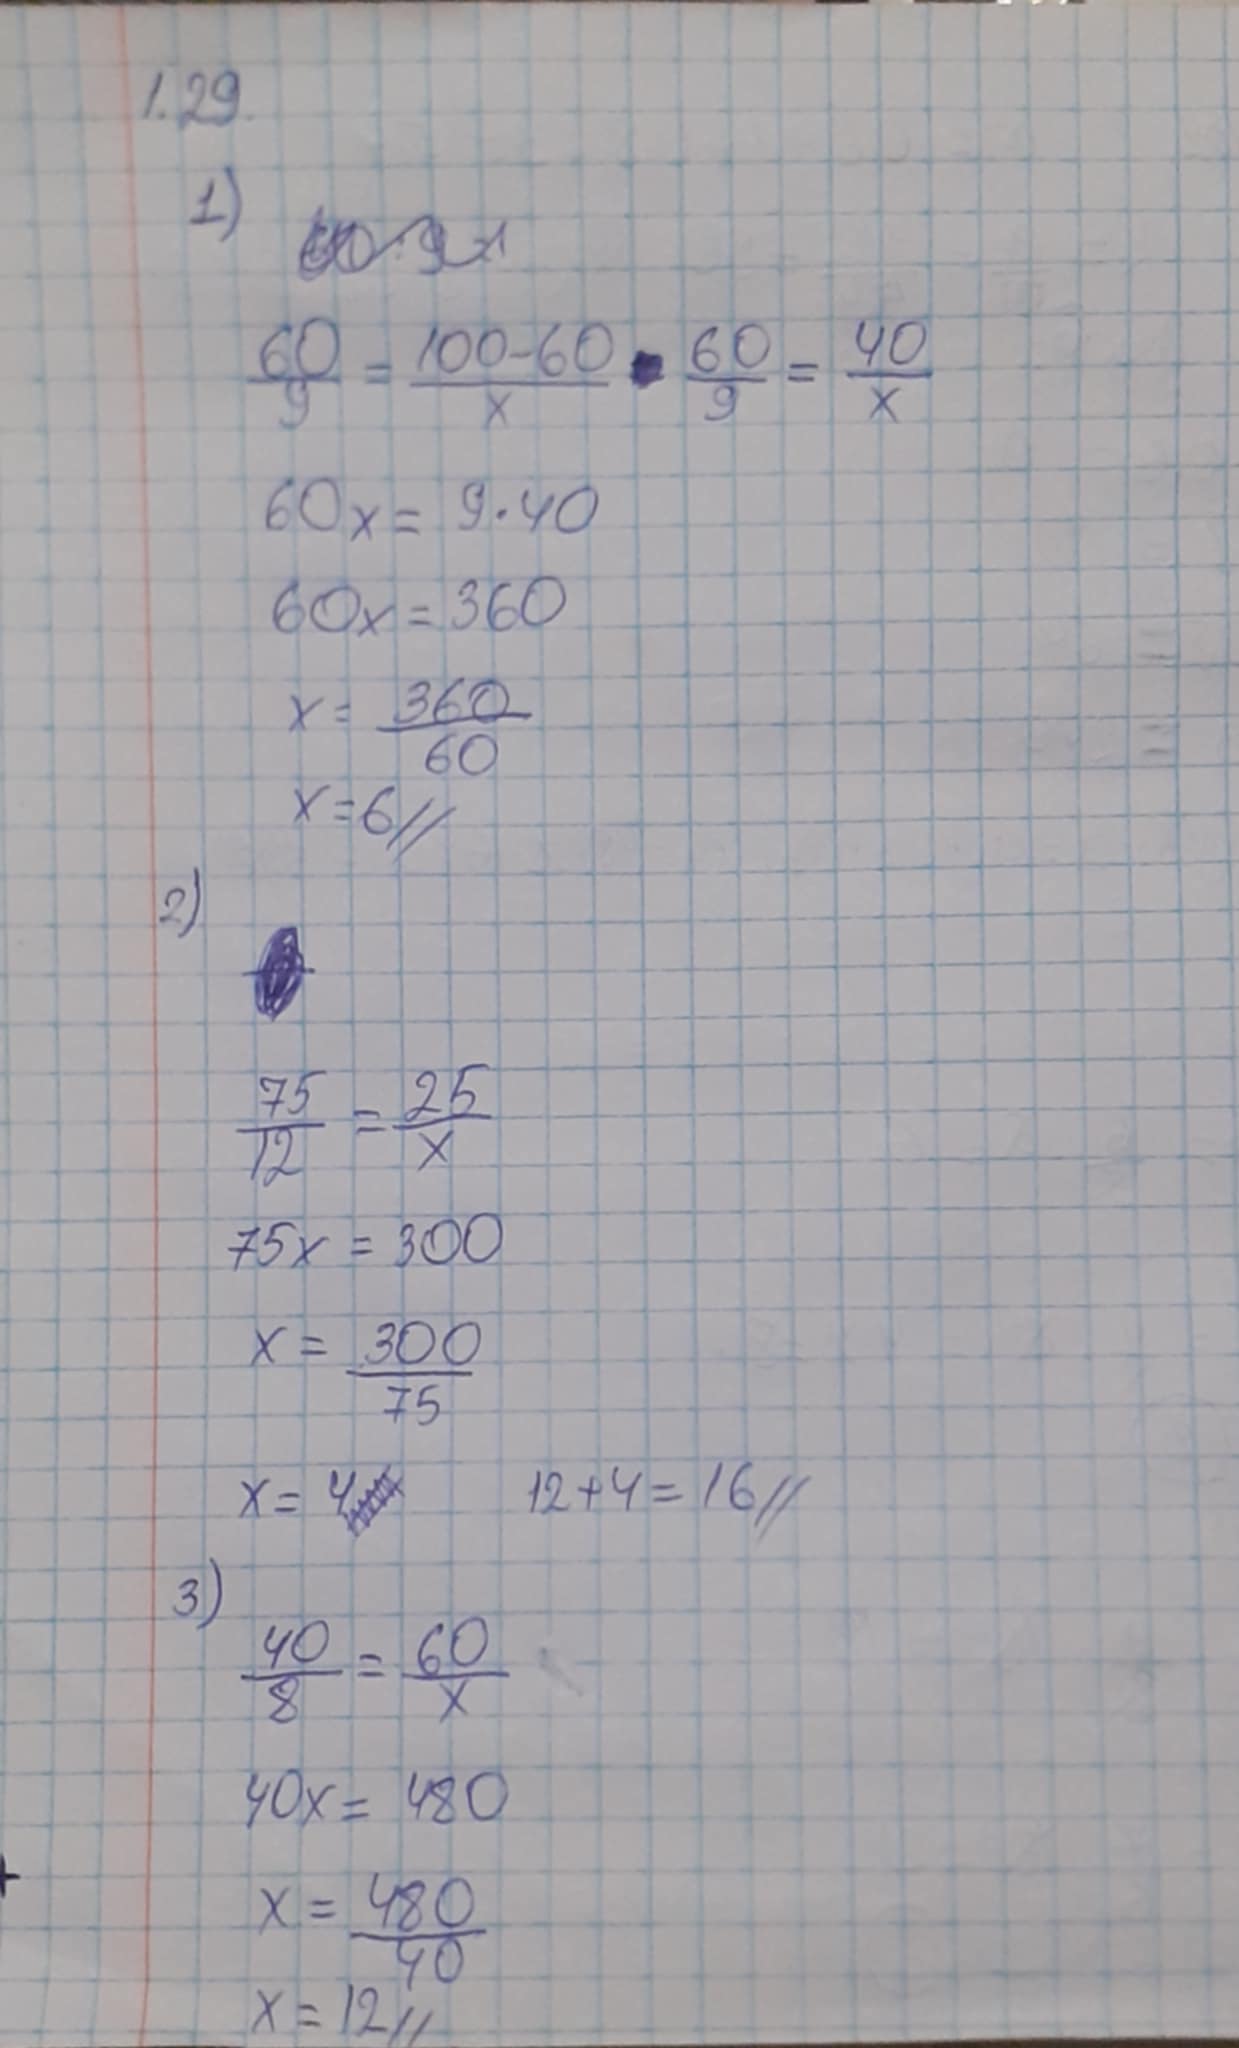 1.29.
1)
60/9 = 100-60/x 60/9 = 40/x
60x = 9·40
60x = 360
x = 360/60
x = 6//
2)
75/12 = 25/x
75x = 300
x = 300/75
x = 4 12+4 = 16//
3)
40/8 = 60/x
40x = 480
x = 480/40
x = 12//